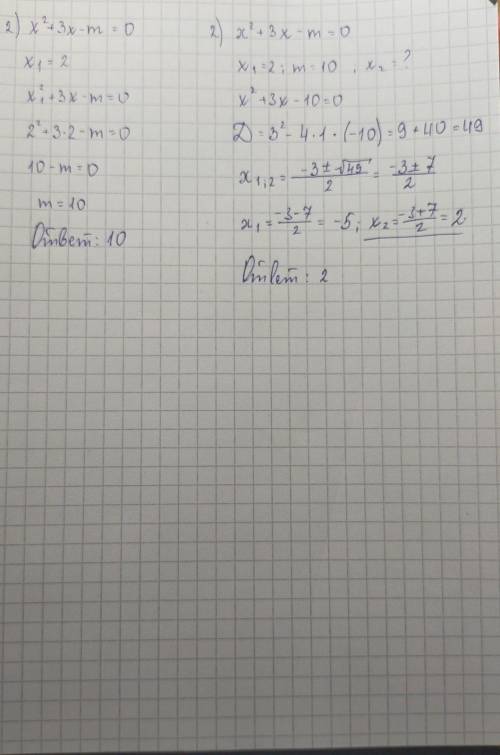 2) x²+3x-m=0
x₁=2
x₁²+3x-m=0
2²+3·2-m=0
10-m=0
m=10
Ответ: 10
2) x²+3x-m=0
x₁=2; m=10, x₂=?
x²+3x-10=0
D=3²-4·1·(-10)=9+40=49
x₁;₂=(-3±√49)/2=(-3±7)/2
x₁=(-3-7)/2=-5; x₂=(-3+7)/2=2
Ответ: 2